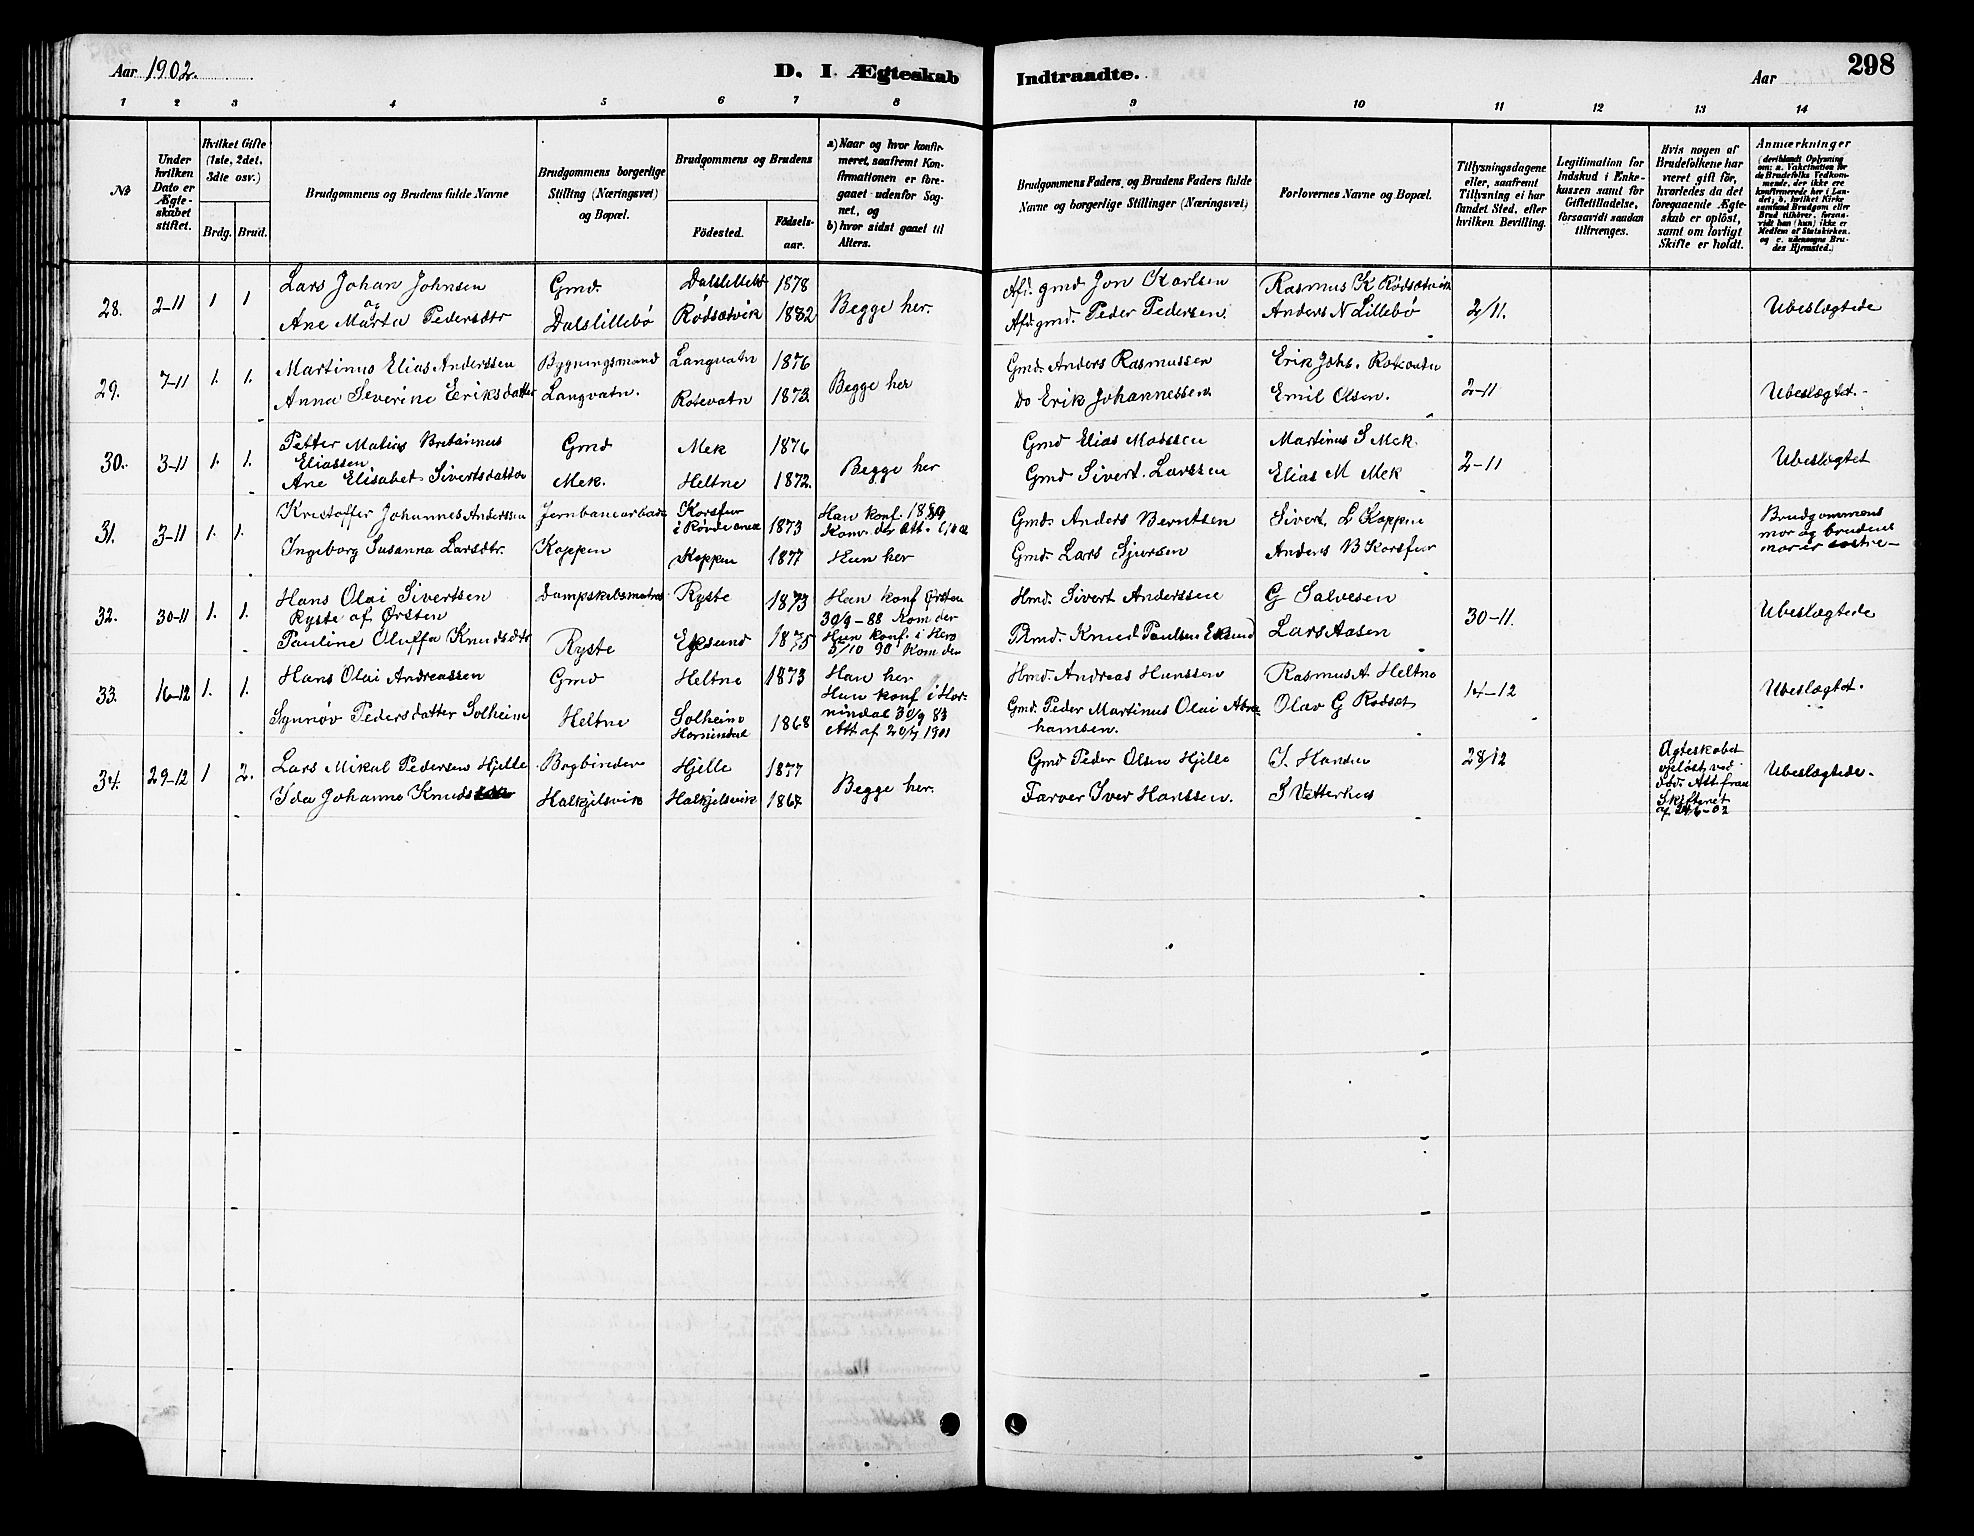 Aar 1902.
D. I Ægteskab Indtraadte.
Aar
298
1 2 3 4 5 6 7 8 9 10 11 12 13 14
No
Under hvilken Dato er Ægteskabet stiftet.
Hvilket Gifte (1ste, 2det, 3die osv.)
Brdg. Brud.
Brudgommens og Brudens fulde Navne
Brudgommens borgerlige Stilling (Næringsvei) og Bopæl.
Brudgommens og Brudens
Födested.
Födselsaar.
a) Naar og hvor konfirmeret, saafremt Konfirmationen er foregaaet udenfor Sognet, og
b) hvor sidst gaaet til Alters.
Brudgommens Faders, og Brudens Faders fulde Navne og borgerlige Stillinger (Næringsvei)
Forlovernes Navne og Bopæl.
Tillysningsdagene eller, saafremt Tillysning ei har fundet Sted, efter hvilken Bevilling.
Legitimation for Indskud i Enkekassen samt for Giftetilladelse, forsaavidt saadan tiltrænges.
Hvis nogen af Brudefolkene har været gift för, hvorledes da det foregaaende Ægteskab er oplöst, samt om lovligt Skifte er holdt.
Anmærkninger
(deriblandt Oplysning om: a. Vakcination for de Brudefolks Vedkommende, der ikke ere konfirmerede her i Landet; b. hvilket Kirkesamfund Brudgom eller Brud tilhörer, forsaavidt han (hun) ikke er Medlem af Statskirken, og c. udensogns Brudes Hjemsted.)
28. 2-11 1 1 Lars Johan Johnsen Gmd. Dalslillebö 1878 Begge her. Afd. gmd Jon Karlsen Rasmus K Rødsætvik 2/11. Ubeslægtede
og
Ane Marta Pedersdtr Dalslillebö Rødsætvik 1882 Afd. gmd. Peder Pedersen. Anders N Lillebø
29. 7-11 1. 1. Martinus Elias Anderssen Bygningsmand Langvatn 1876 Begge her Gmd. Anders Rasmussen Erik Johs. Rotevatn 2-11 Ubeslægtet.
Anna Severine Eriksdatter Langvatn. Rotevatn 1873. Do Erik Johannessen Emil Olsen.
30. 3-11 1. 1. Petter Matias Gmd Mek 1876 Begge her Gmd Elias Madssen Martinus S Mek. 2-11 Ubeslægtet
Eliassen.
Ane Elisabet Sivertsdatter Mek. Heltne 1872. Gmd Sivert. Larssen Elias M Mek
31. 3-11 1. 1. Kristoffer Johannes Anderssen Korsfur 1873 Han konf. 1889 Gmd. Anders Berntsen Sivert. L Koppen Brudgommens
mor og brudens
mor er søstre
Ingeborg Susanna Larsdtr. Koppen Koppen 1877 Hun her Gmd. Lars Sjursen Anders B Korsfur
32. 30-11 1. 1. Hans Olai Sivertsen Ryste 1873 Han konf Ørsten Hmd. Sivert Anderssen G Salvesen 30-11. Ubeslægtede
Ryste af Ørsten 30/9-88 Kom der
Pauline Oluffa Knudsdtr Ryste Eksund 1875 Hun konf. i Herø Knud Paulsen Eksund Lars Aasen
5/10 90 Kom der
33. 16-12 1. 1. Hans Olai Andreassen Gmd Heltne 1873 Han her Hmd. Andreas Hanssen Rasmus A. Heltne 14-12 Ubeslægtet.
Hun konf i Hornindal 30/9 83
Synnøv Pedersdatter Solheim Heltne Solheim Hornindal 1868 Att af 20/7 1901 Gmd. Peder Martinus Olai Abrahamsen. Olav G Rødset
34. 29-12 1 2. Lars Mikal Pedersen Hjelle Bogbinder Hjelle 1877 Begge her. Gmd Peder Olsen Hjelle J. Hansen 28/12 Ægteskabet
opløst ved
død. Att fra
Skifteret
Ubeslægtede.
Ida Johanne Knuds Halkjelsvik Halkjelsvik 1867 Farver Iver Hanssen. S Vatterhus